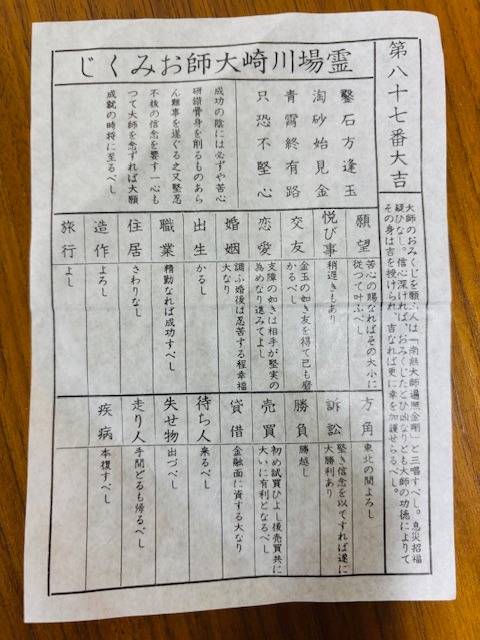 第八十七番大吉
大師のおみくじを願ふ人は「南無大師遍照金剛」と三唱すべし。息災招福
疑ひなし。信心深ければ、おみくじたとひ凶なりとも大師の功徳によりて
その身は吉を授けられ、吉なれば更に幸を加護せらるべし。
霊場川崎大師おみくじ
鑿石方逢玉
淘砂始見金
青霄終有路
只恐不堅心
成功の陰には必ずや苦心
研鑽骨身を削るものあら
ん難事を遂ぐる之又堅忍
不抜の信念を要す一心も
つて大師を念ずれば大願
成就の時将に至るべし
願望
苦心の賜なればその大小に
従つて叶ふべし
悦び事
稍遅きもあり
交友
金玉の如き友を得て己も磨
かるべし
恋愛
支障の如きは相手が堅実の
為めなり進みてよし
婚姻
調ふ婚後は忍苦する程幸福
大なり
出生
かるし
職業
精勤なれば成功すべし
住居
さわりなし
造作
よろし
旅行
よし
方角
東北の間よろし
訴訟
堅き信念を以てすれば遂に
大勝利あり
勝負
勝越し
売買
初め試買ひよし後売買共に
大いに有利となるべし
貸借
金融面に資する大なり
待ち人
来るべし
失せ物
出づべし
走り人
手間どるも帰るべし
疾病
本復すべし